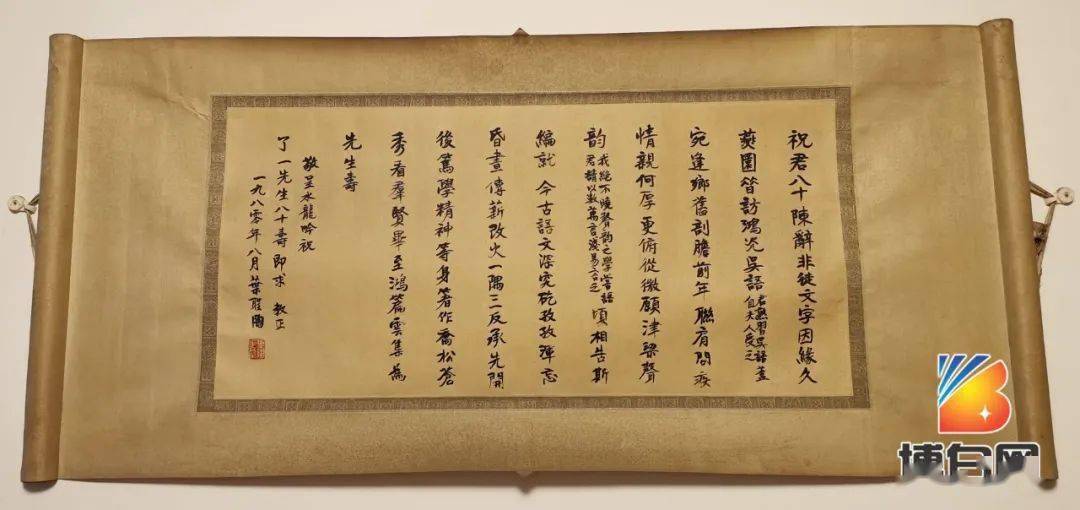 祝君八十陳辭非徒文字因緣久
燕園答訪鴻光吳語君熟習吳語蓋自夫人受之
宛逢鄉舊剖膽前年聯肩問疾
情親何厚更俯從微願津梁聲
韵我絕不曉聲韵之學嘗語君請以數萬言淺易言之頃相告斯
編就 今古語文深究矻孜孜殫忘
昏晝傳薪改火一隅三反承先開
後篤學精神等身著作喬松蒼
秀看羣賢畢至鴻篇雲集為
先生壽
敬呈水龍吟祝
了一先生八十壽即求 教正
一九八零年八月葉聖陶
博包网